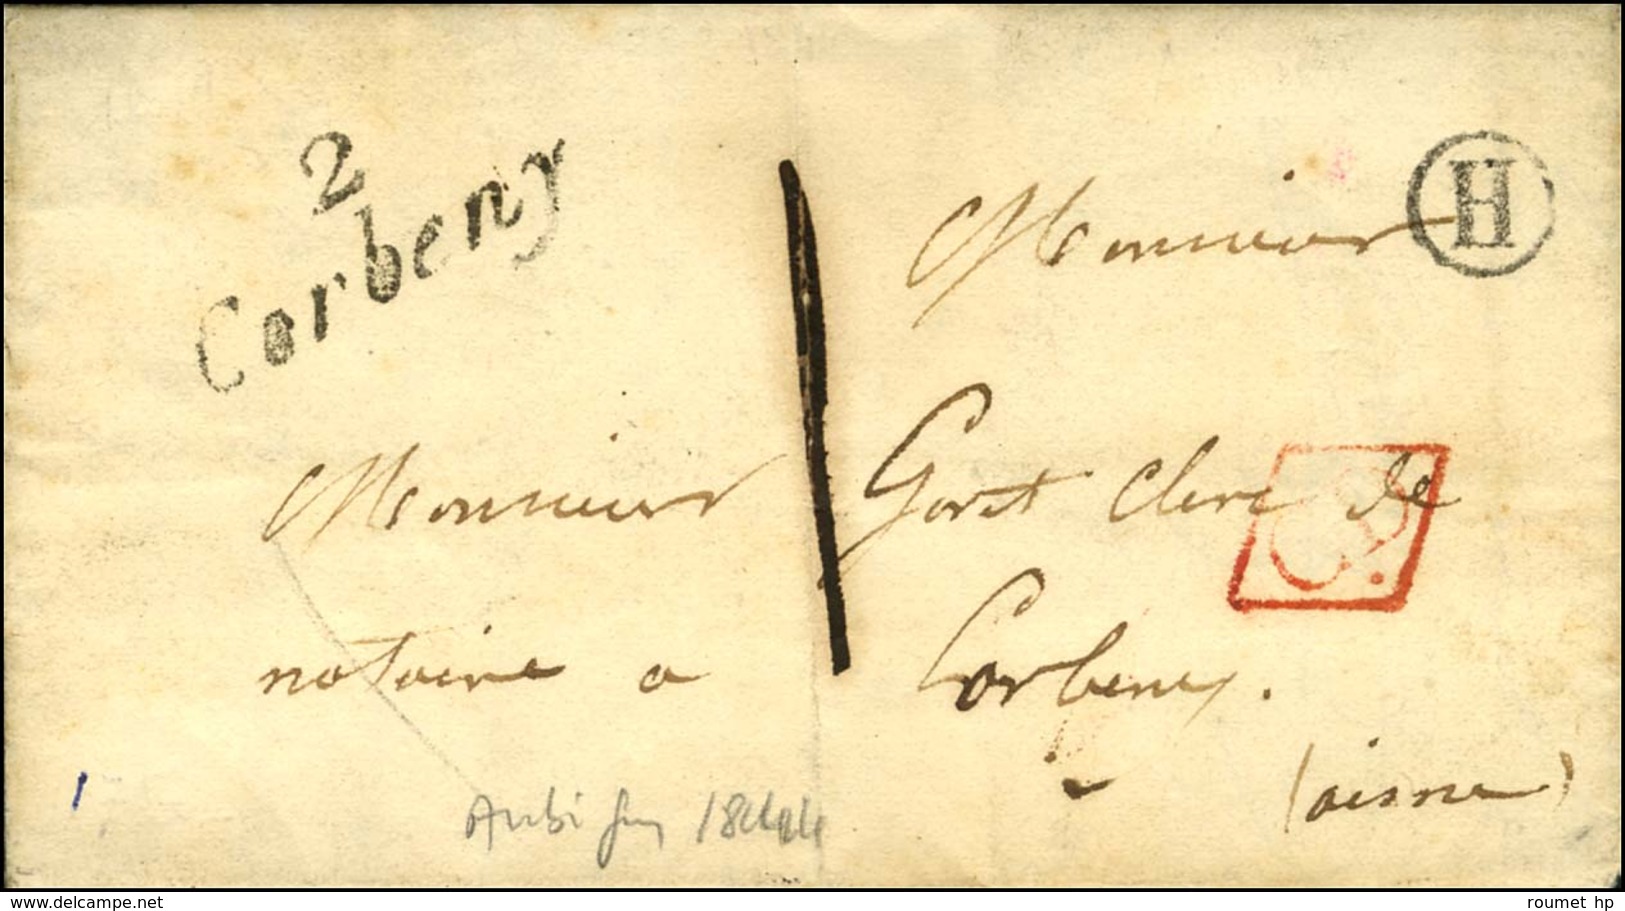 2
Corbeny
H
Monsieur
Monsieur Goret clerc de
notaire a Corbeny.
(aisne)
CD.
Aubigny 1844
delcampe.net
roumet hp